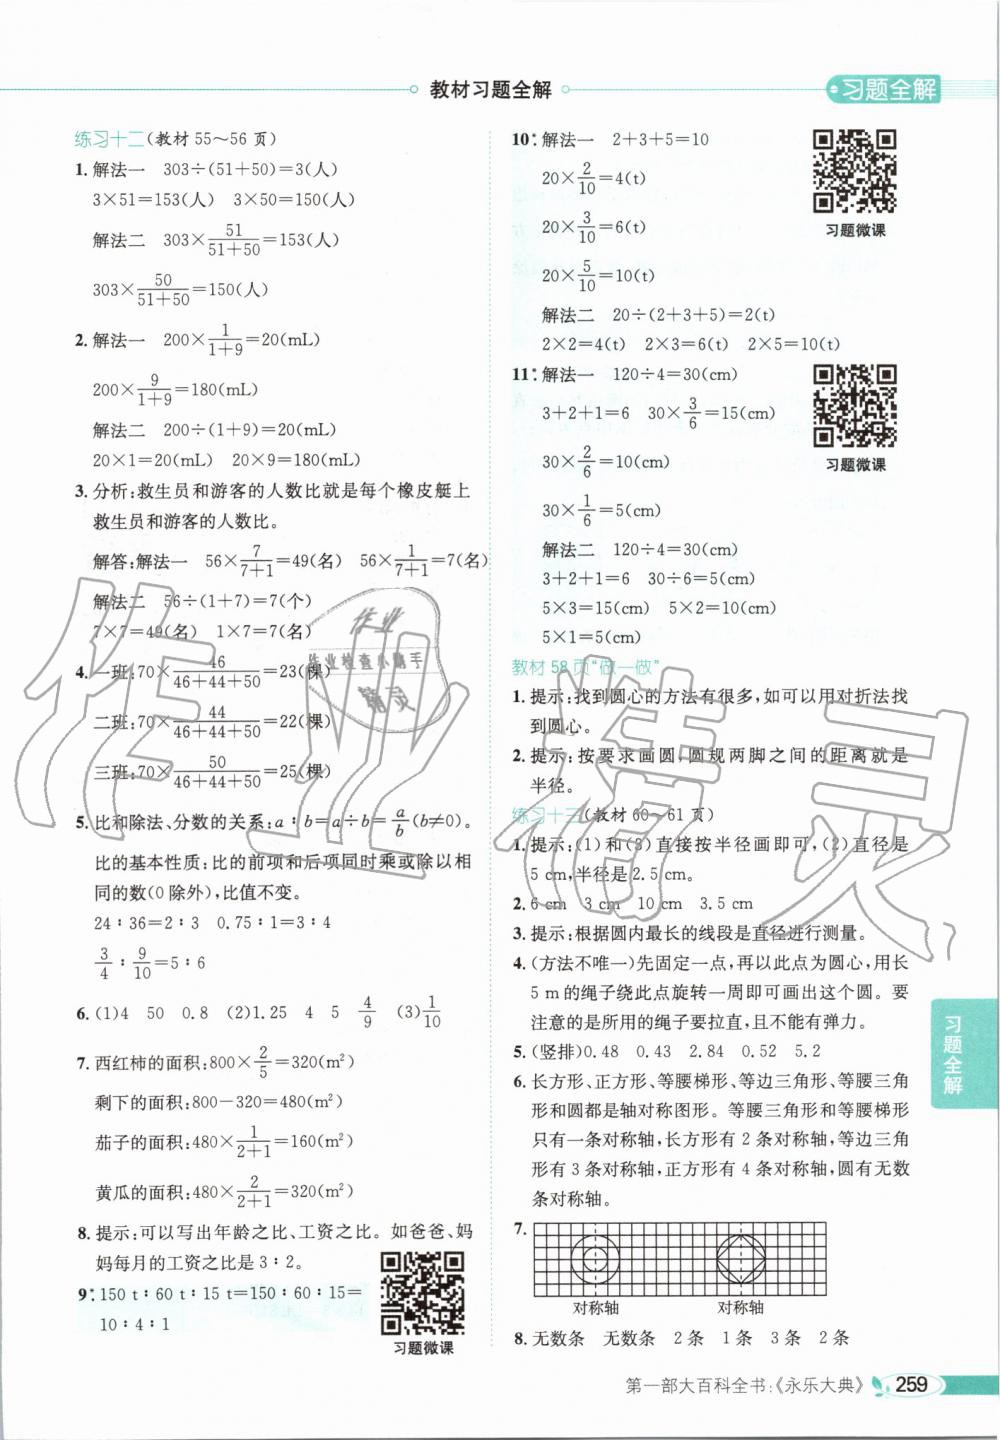 教材习题全解
习题全解
练习十二(教材 55～56 页)
1. 解法一 303÷(51+50)=3(人)
3×51=153(人) 3×50=150(人)
解法二 303×51/(51+50)=153(人)
303×50/(51+50)=150(人)
2. 解法一 200×1/(1+9)=20(mL)
200×9/(1+9)=180(mL)
解法二 200÷(1+9)=20(mL)
20×1=20(mL) 20×9=180(mL)
3. 分析:救生员和游客的人数比就是每个橡皮艇上
救生员和游客的人数比。
解答:解法一 56×7/(7+1)=49(名) 56×1/(7+1)=7(名)
解法二 56÷(1+7)=7(个)
7×7=49(名) 1×7=7(名)
4. 一班:70×46/(46+44+50)=23(棵)
二班:70×44/(46+44+50)=22(棵)
三班:70×50/(46+44+50)=25(棵)
5. 比和除法、分数的关系:a∶b=a÷b=a/b(b≠0)。
比的基本性质:比的前项和后项同时乘或除以相
同的数(0 除外),比值不变。
24∶36=2∶3 0.75∶1=3∶4
3/4∶9/10=5∶6
6. (1)4 50 0.8 (2)1.25 4 5 4/9 (3)1/10
7. 西红柿的面积:800×2/5=320(m²)
剩下的面积:800-320=480(m²)
茄子的面积:480×1/(2+1)=160(m²)
黄瓜的面积:480×2/(2+1)=320(m²)
8. 提示:可以写出年龄之比、工资之比。如爸爸、妈
妈每月的工资之比是 3∶2。
9* 150 t∶60 t∶15 t=150∶60∶15=
10∶4∶1
习题微课
10* 解法一 2+3+5=10
20×2/10=4(t)
20×3/10=6(t)
20×5/10=10(t)
解法二 20÷(2+3+5)=2(t)
2×2=4(t) 2×3=6(t) 2×5=10(t)
习题微课
11* 解法一 120÷4=30(cm)
3+2+1=6 30×3/6=15(cm)
30×2/6=10(cm)
30×1/6=5(cm)
解法二 120÷4=30(cm)
3+2+1=6 30÷6=5(cm)
5×3=15(cm) 5×2=10(cm)
5×1=5(cm)
习题微课
教材 58 页“做一做”
1. 提示:找到圆心的方法有很多,如可以用对折法找
到圆心。
2. 提示:按要求画圆,圆规两脚之间的距离就是
半径。
练习十三(教材 60～61 页)
1. 提示:(1)和(3)直接按半径画即可,(2)直径是
5 cm,半径是 2.5 cm。
2. 6 cm 3 cm 10 cm 3.5 cm
3. 提示:根据圆内最长的线段是直径进行测量。
4. (方法不唯一)先固定一点,再以此点为圆心,用长
5 m的绳子绕此点旋转一周即可画出这个圆。要
注意的是所用的绳子要拉直,且不能有弹力。
5. (竖排)0.48 0.43 2.84 0.52 5.2
6. 长方形、正方形、等腰梯形、等边三角形、等腰三角
形和圆都是轴对称图形。等腰三角形和等腰梯形
只有一条对称轴,长方形有 2 条对称轴,等边三角
形有 3 条对称轴,正方形有 4 条对称轴,圆有无数
条对称轴。
7.
对称轴 对称轴
8. 无数条 无数条 2 条 1 条 3 条 2 条
习题全解
第一部大百科全书:《永乐大典》 259
作业精灵
作业
作业检查小助手
精灵